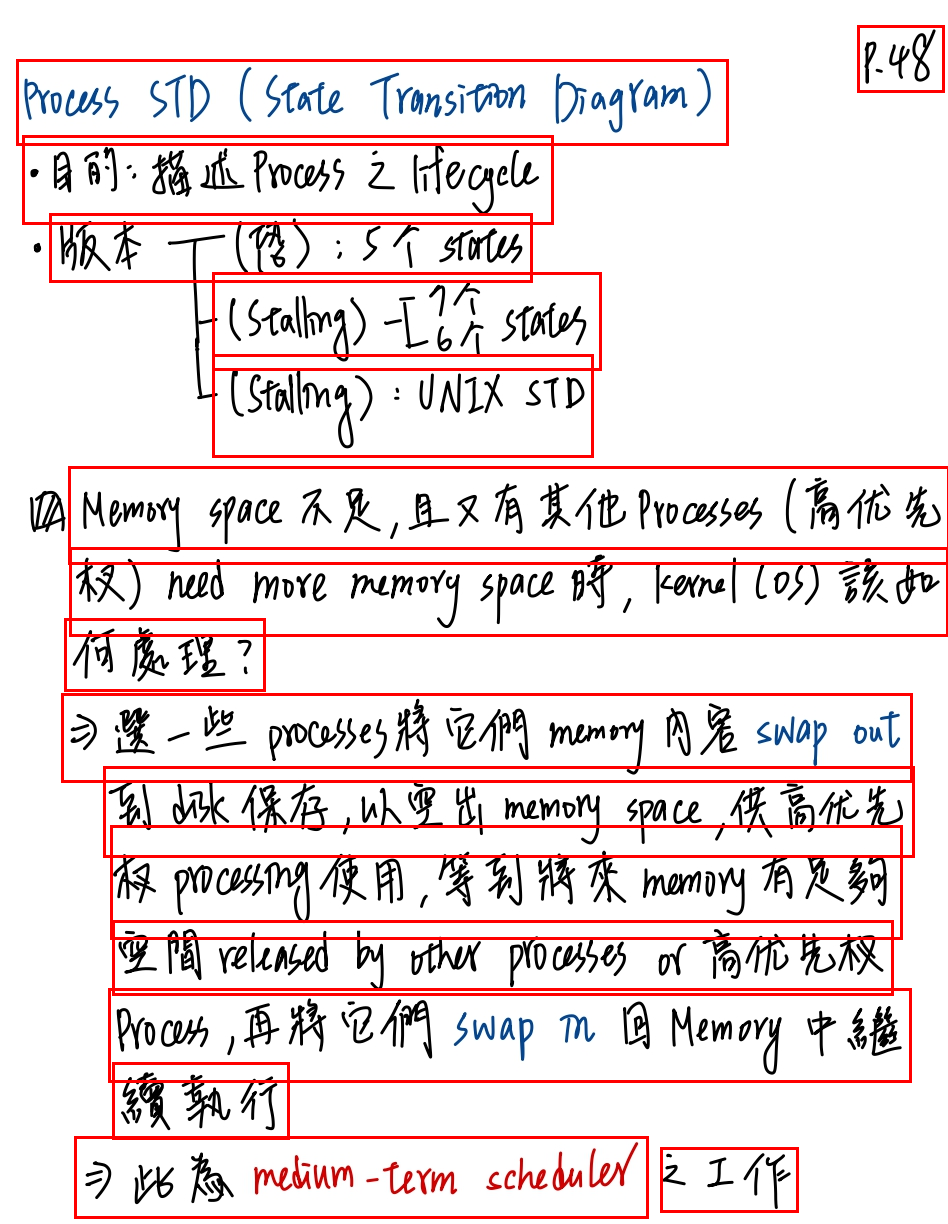 P.48
Process STD (State Transition Diagram)
・目的：描述 Process 之 lifecycle
・版本 (恐)：5个 states
(Stalling) 7个 6个 states
(Stalling)：UNIX STD
Memory space 不足, 且又有其他 Processes (高优先
权) need more memory space 時, kernel (OS) 該如
何處理?
⇒ 選一些 processes 將它們 memory 內容 swap out
到 disk 保存, 以空出 memory space, 供高优先
权 processing 使用, 等到將來 memory 有足夠
空間 released by other processes or 高优先权
Process, 再將它們 swap in 回 Memory 中繼
續執行
⇒ 此為 medium-term scheduler 之工作